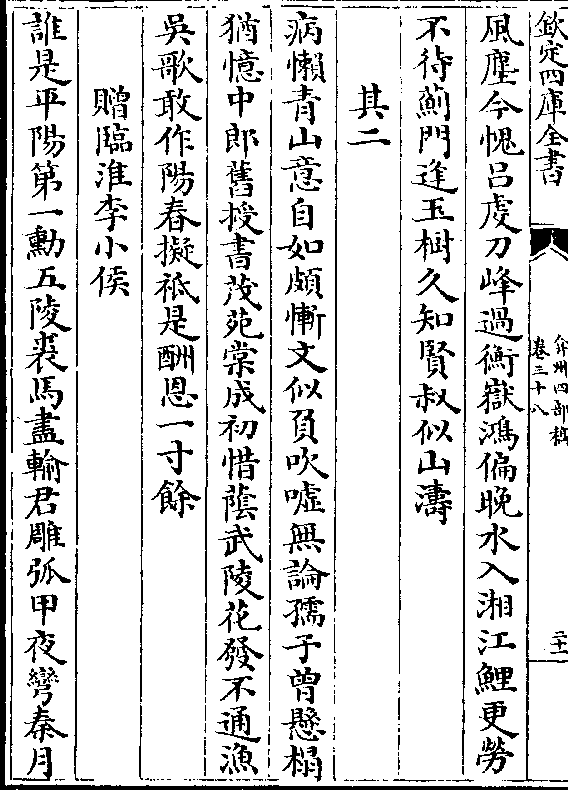 欽定四庫全書
弇州四部稿
卷三十八
二十一
風塵今愧呂虔刀峰過衡嶽鴻偏晚水入湘江鯉更勞
不待薊門逢玉樹久知賢叔似山濤
其二
病懶青山意自如頗慚文似負吹噓無論孺子曽懸榻
猶憶中郎舊授書茂苑棠成初惜蔭武陵花發不通漁
吳歌敢作陽春擬秪是酬恩一寸餘
贈臨淮李小侯
誰是平陽第一勳五陵裘馬盡輸君雕弧甲夜彎秦月